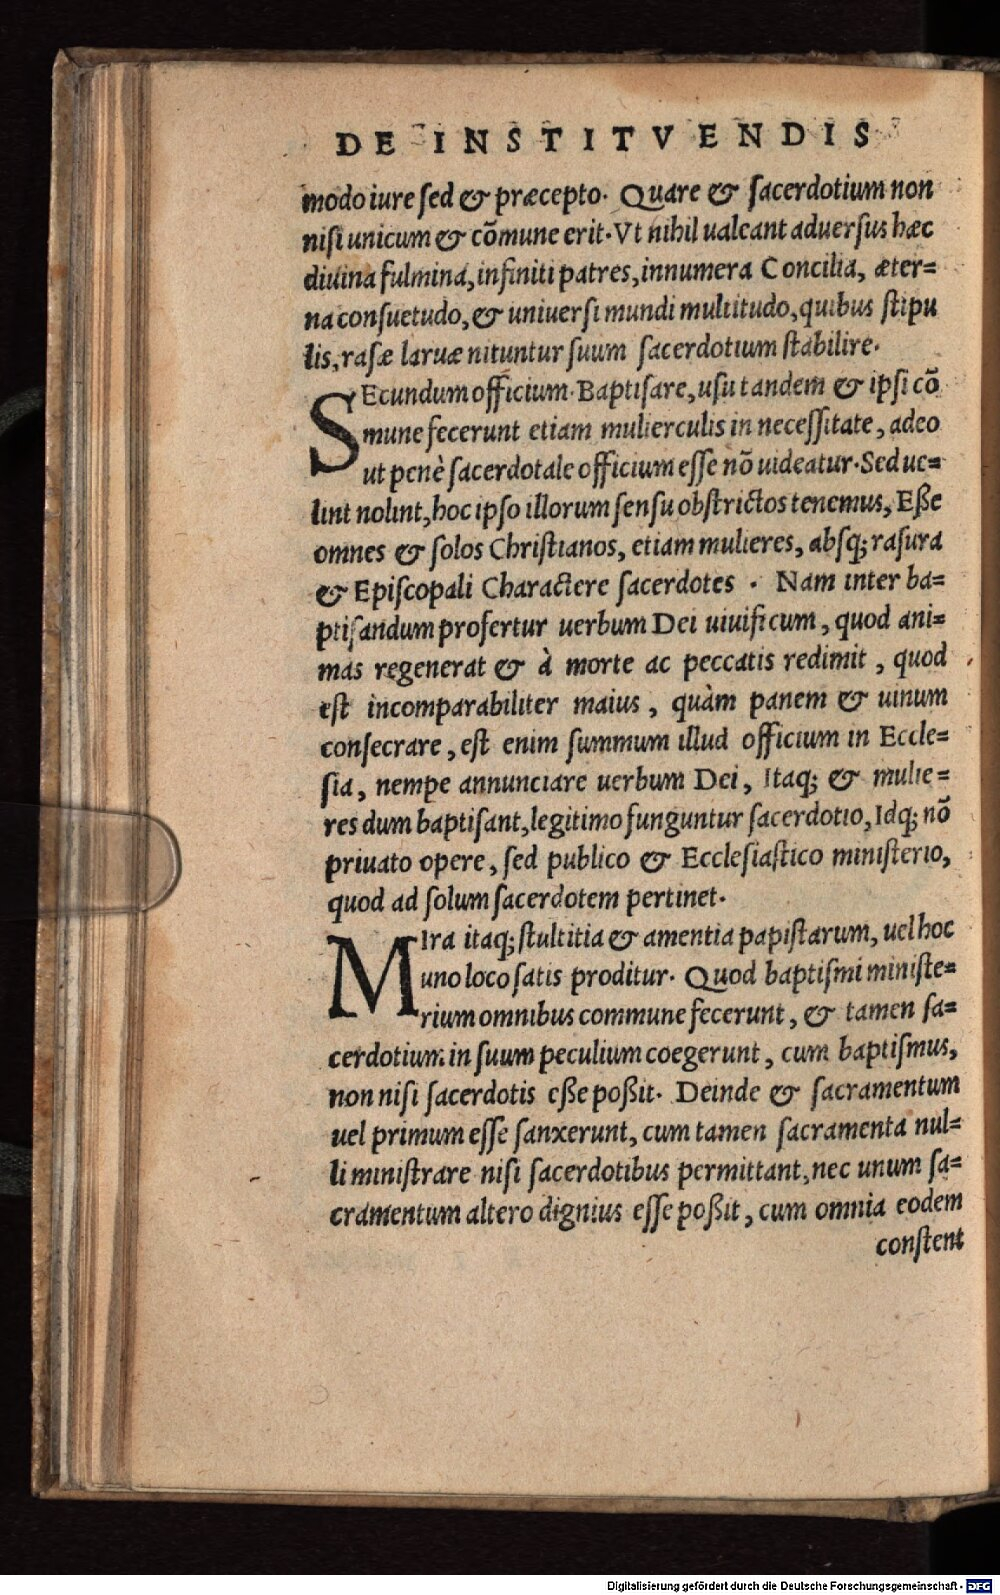 DE INSTITVENDIS
modo iure sed & præcepto. Quare & sacerdotium non
nisi unicum & cõmune erit. Vt nihil ualeant aduersus hæc
diuina fulmina, infiniti patres, innumera Concilia, æter=
na consuetudo, & uniuersi mundi multitudo, quibus stipu
lis, rasæ laruæ nituntur suum sacerdotium stabilire.
SEcundum officium. Baptisare, usu tandem & ipsi cõ
mune fecerunt etiam mulierculis in necessitate, adeo
ut penè sacerdotale officium esse nõ uideatur. Sed ue=
lint nolint, hoc ipso illorum sensu obstrictos tenemus, Eße
omnes & solos Christianos, etiam mulieres, absq; rasura
& Episcopali Charactere sacerdotes. Nam inter ba=
ptisandum profertur uerbum Dei uiuificum, quod ani=
mas regenerat & à morte ac peccatis redimit, quod
est incomparabiliter maius, quàm panem & uinum
consecrare, est enim summum illud officium in Eccle=
sia, nempe annunciare uerbum Dei, Itaq; & mulie=
res dum baptisant, legitimo funguntur sacerdotio, Idq; nõ
priuato opere, sed publico & Ecclesiastico ministerio,
quod ad solum sacerdotem pertinet.
MIra itaq; stultitia & amentia papistarum, uel hoc
uno loco satis proditur. Quod baptismi ministe=
rium omnibus commune fecerunt, & tamen sa=
cerdotium in suum peculium coegerunt, cum baptismus,
non nisi sacerdotis eße poßit. Deinde & sacramentum
uel primum esse sanxerunt, cum tamen sacramenta nul=
li ministrare nisi sacerdotibus permittant, nec unum sa=
cramentum altero dignius esse poßit, cum omnia eodem
constent
Digitalisierung gefördert durch die Deutsche Forschungsgemeinschaft - DFG